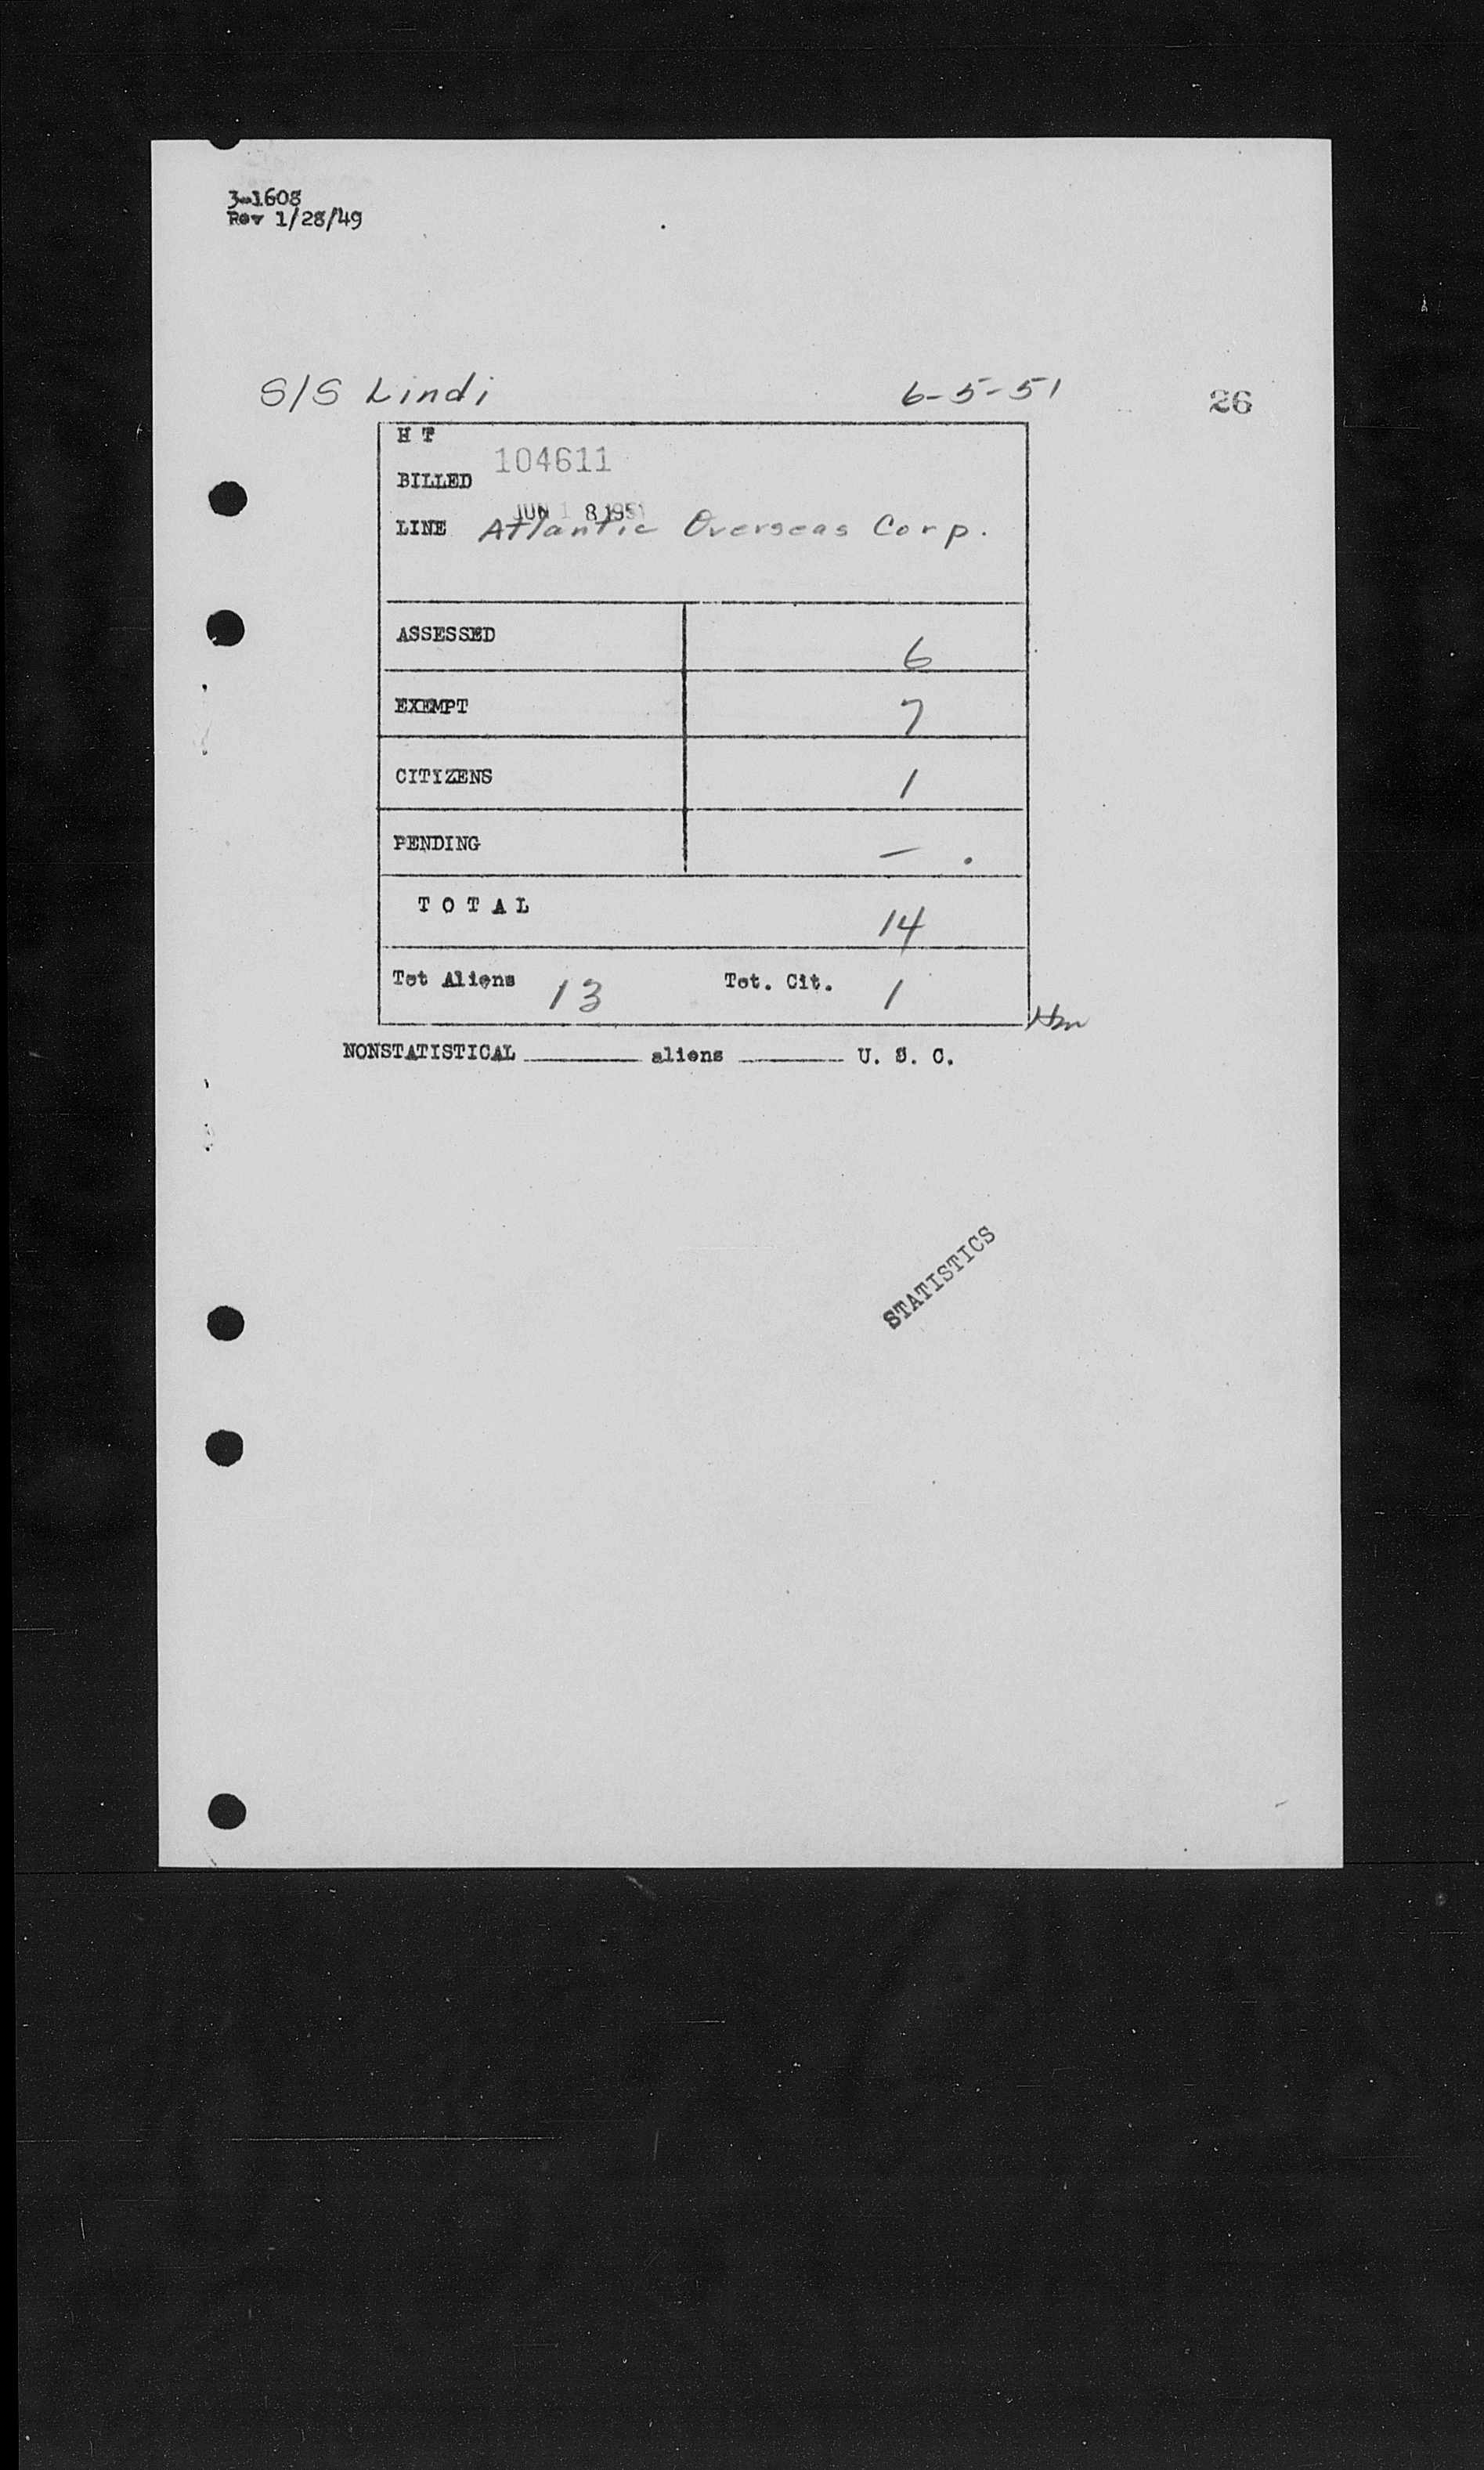 3-1608
Rev 1/28/49
S/S Lindi 6-5-51 26
H T
104611
BILLED
JUN 18 1951
LINE Atlantic Overseas Corp.
ASSESSED 6
EXEMPT 7
CITIZENS 1
PENDING —
T O T A L 14
Tot Aliens 13 Tot. Cit. 1
NONSTATISTICAL ________ aliens ________ U. S. C.
STATISTICS